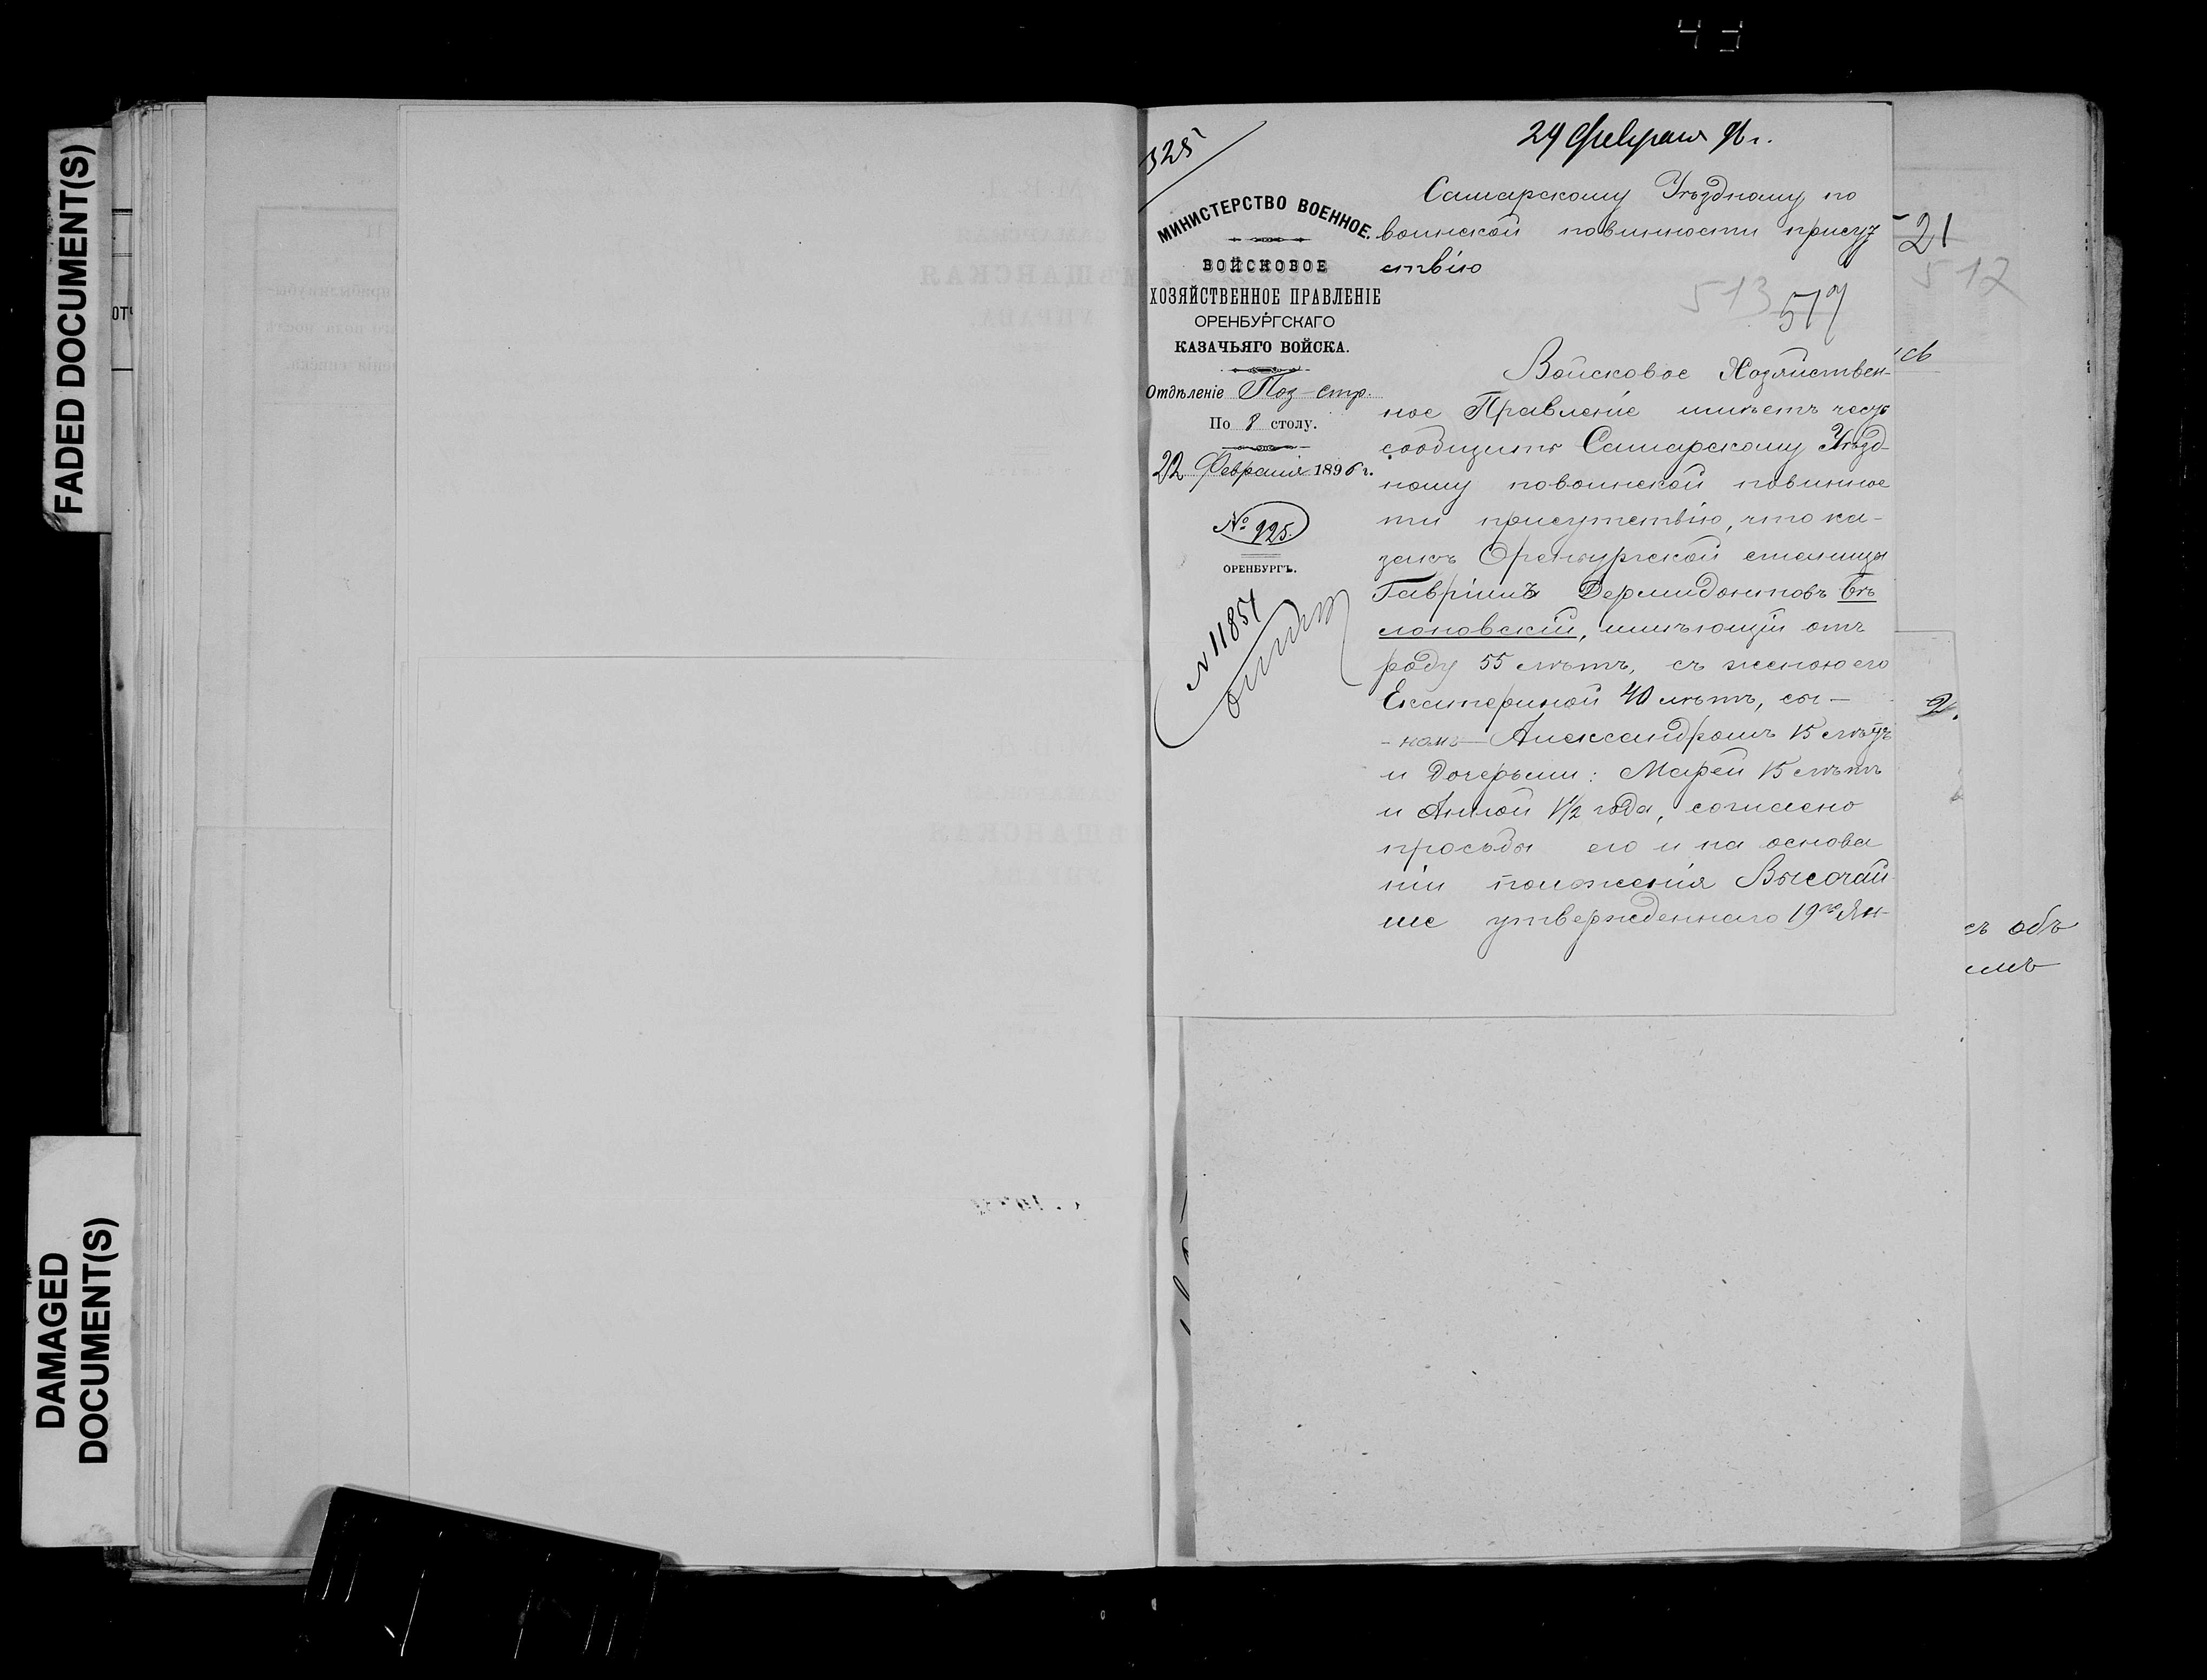 FADED DOCUMENT(S)
DAMAGED
DOCUMENT(S)
325
29 Февраля 96 г.
МИНИСТЕРСТВО ВОЕННОЕ.
ВОЙСКОВОЕ
ХОЗЯЙСТВЕННОЕ ПРАВЛЕНІЕ
ОРЕНБУРГСКАГО
КАЗАЧЬЯГО ВОЙСКА.
Отдѣленіе Поз-стр.
По 8 столу.
22 Февраля 1896 г.
№ 925.
ОРЕНБУРГЪ.
N 11851
Самарскому Уѣздному по
воинской повинности присут
ствію
513
517
Войсковое Хозяйствен-
ное Правленіе имѣетъ честь
сообщить Самарскому Уѣзд-
ному по воинской повиннос
ти присутствію, что ка-
закъ Оренбургской станицы
Гавріилъ Дермидонтовъ Бѣ
лоновскій, имѣющій отъ
роду 55 лѣтъ, съ женою его
Екатериной 40 лѣтъ, сы-
-номъ- Александромъ 15 лѣтъ
и дочерьми: Марей 15 лѣтъ
и Анной 1/2 года, согласно
просьбы его и на основа
ніи положенія Высочай-
ше утвержденнаго 19го Ян-
21
512
2.
съ объ
емъ